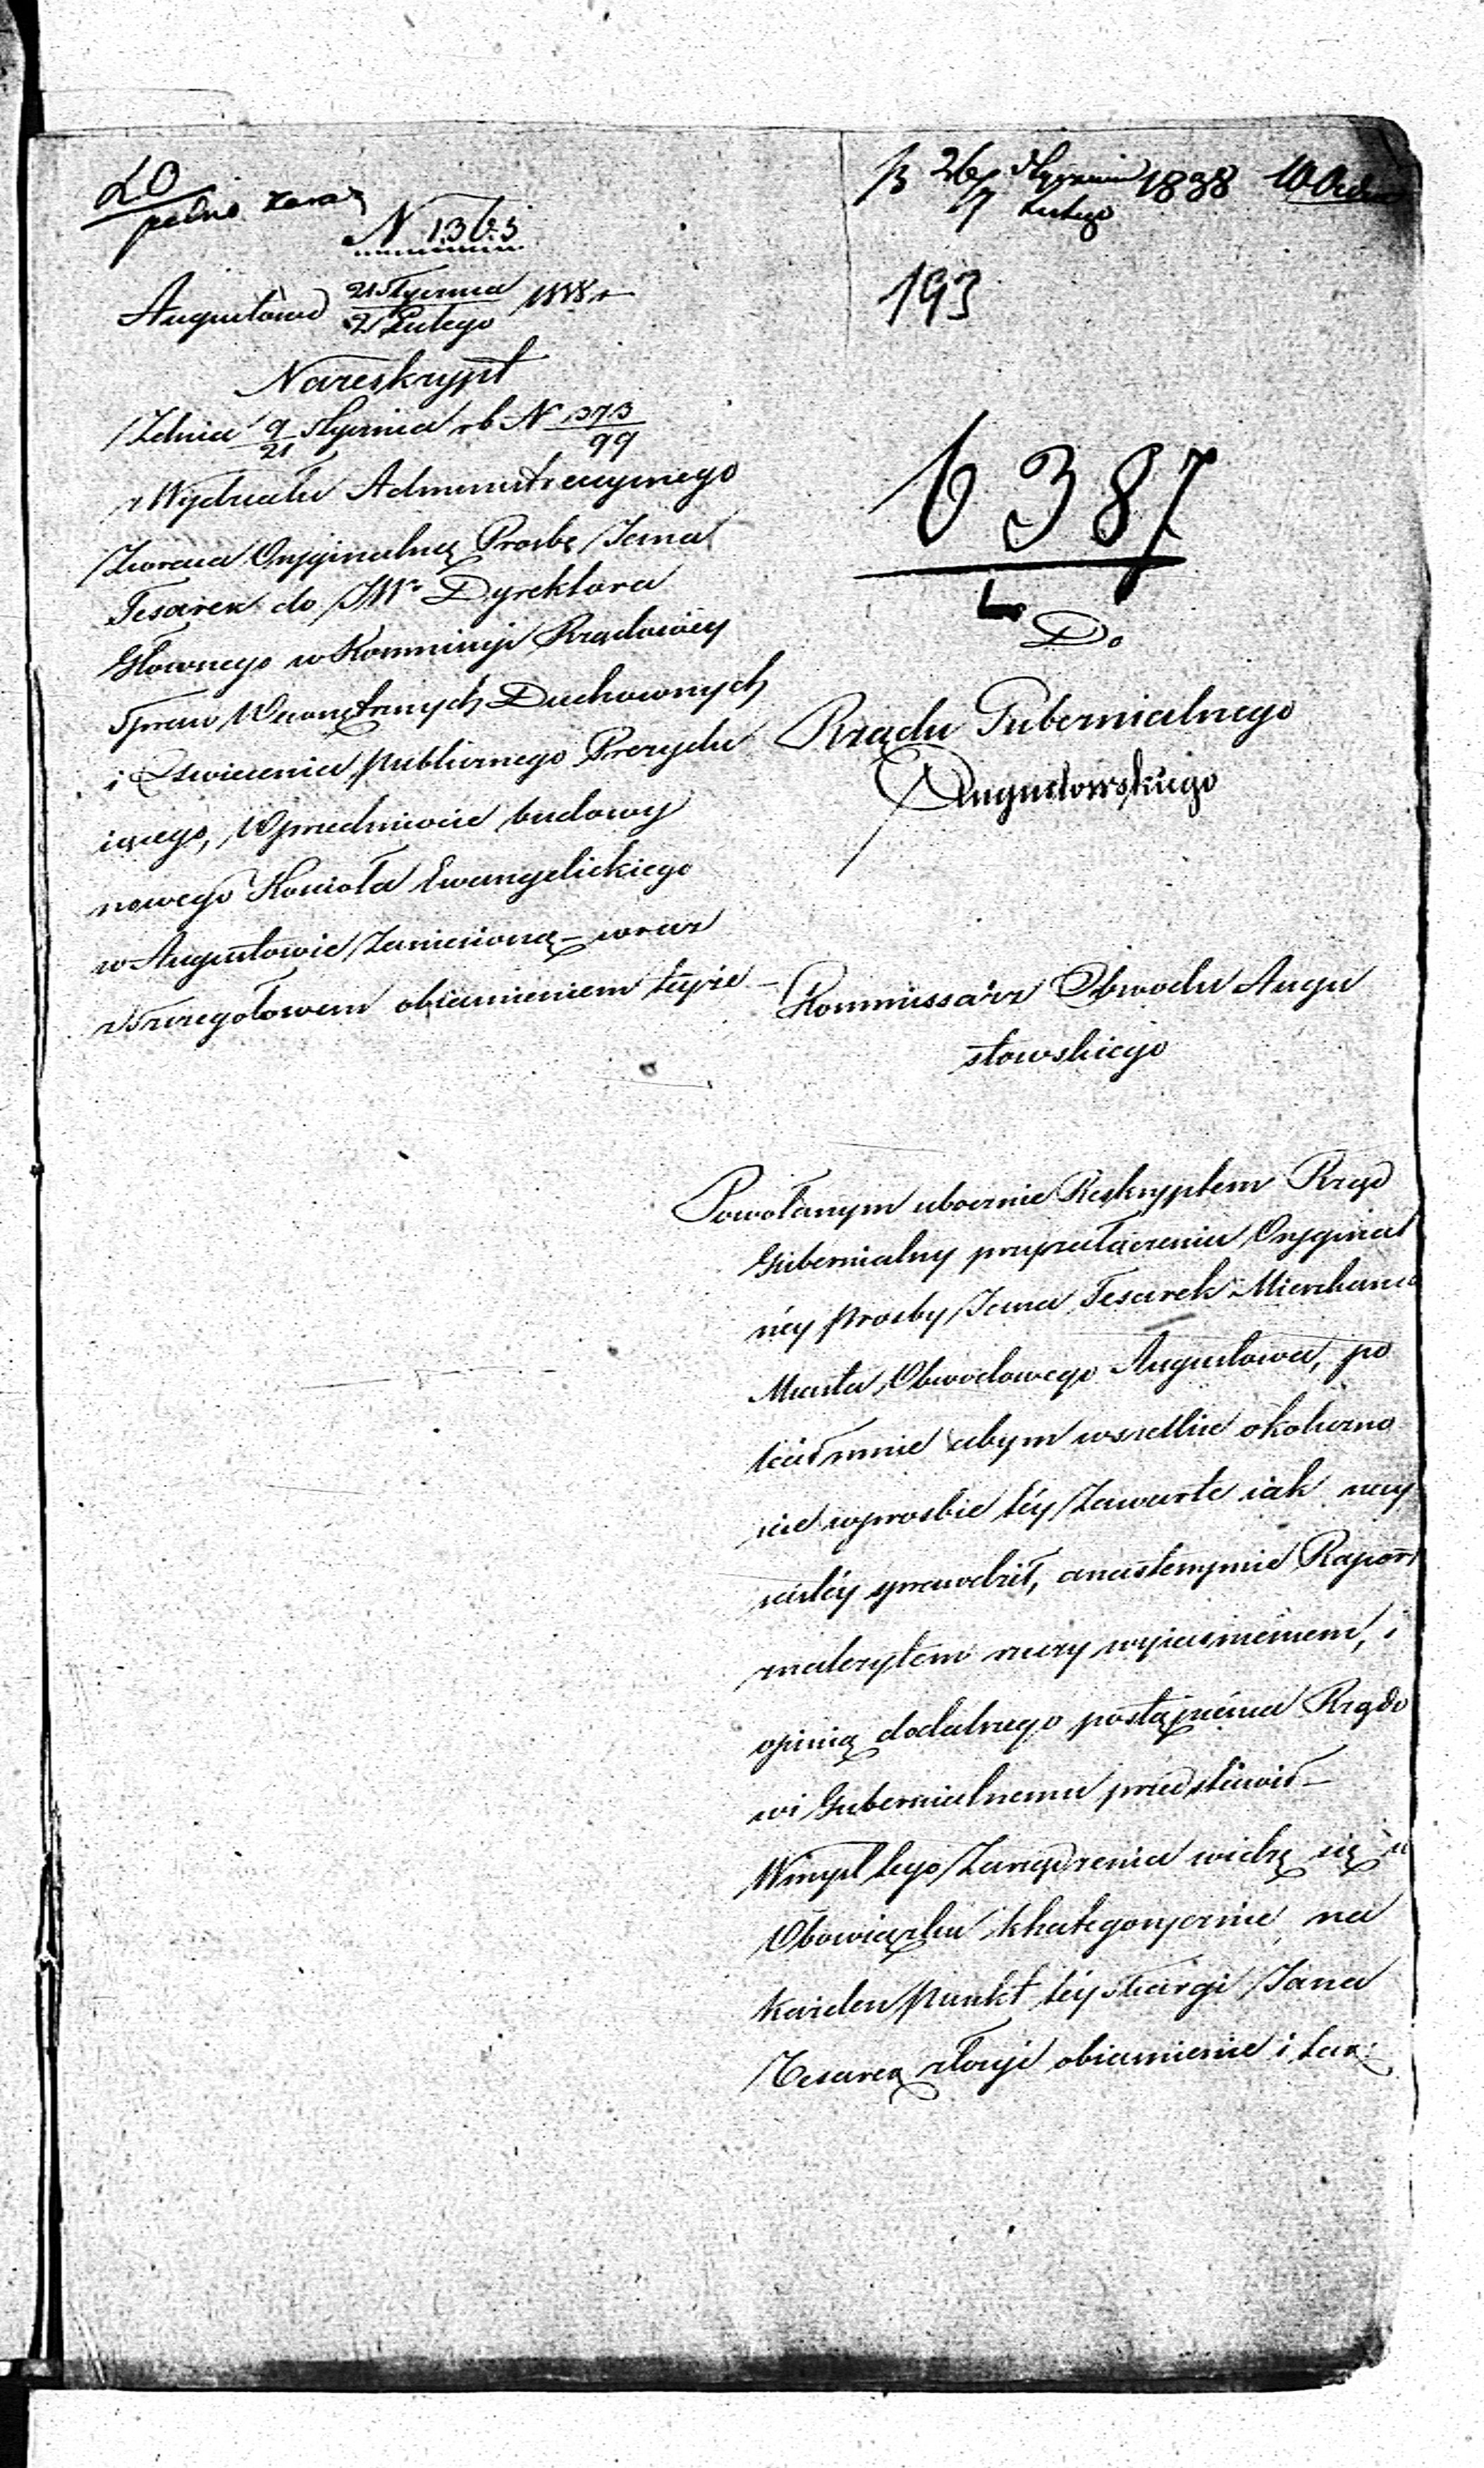 pilno zaraz
N 1365
Augustowo 21 Stycznia / 2 Lutego 1838 r
Na reskrypt
Z dnia 9/21 Stycznia r b N 1373/99
z Wydziału Administracyinego
Zwraca Oryginalną Prosbę Jana
Tesarek do JWo Dyrektora
Głownego w Kommissyi Rządowéy
Spraw Wewnętrznych Duchownych
i Oswiecenia publicznego Prezydu
iącego, W przedmiocie budowy
nowego Kościoła Ewangelickiego
w Augustowie Zaniesioną – wraz
z Szczegołowem obiasnieniem teyże –
26 Stycznia / 7 Lutego 1838
193
6387
Do
Rządu Gubernialnego
Augustowskiego
Kommissarz Obwodu Augu
stowskiego
Powołanym ubocznie Reskryptem Rząd
Gubernialny przy załączeniu Oryginal
néy prosby Jana Tesarek Mieszkanca
Miasta Obwodowego Augustowa, po
lecił mnie abym wszelkie okoliczno
scie w prosbie téy Zawarte iak nay
scisléy sprawdził, a nastempnie Raport
z należytem rzeczy wyiasnieniem, i
opinią dodalszego postąpienia Rządo
wi Gubernialnemu przedstawił –
W mysl tego Zarządzenia widzę się w
Obowiązku khategorycznie na
każden punkt téy skargi Jana
Tesarek złożyć obiasnienie i tak: